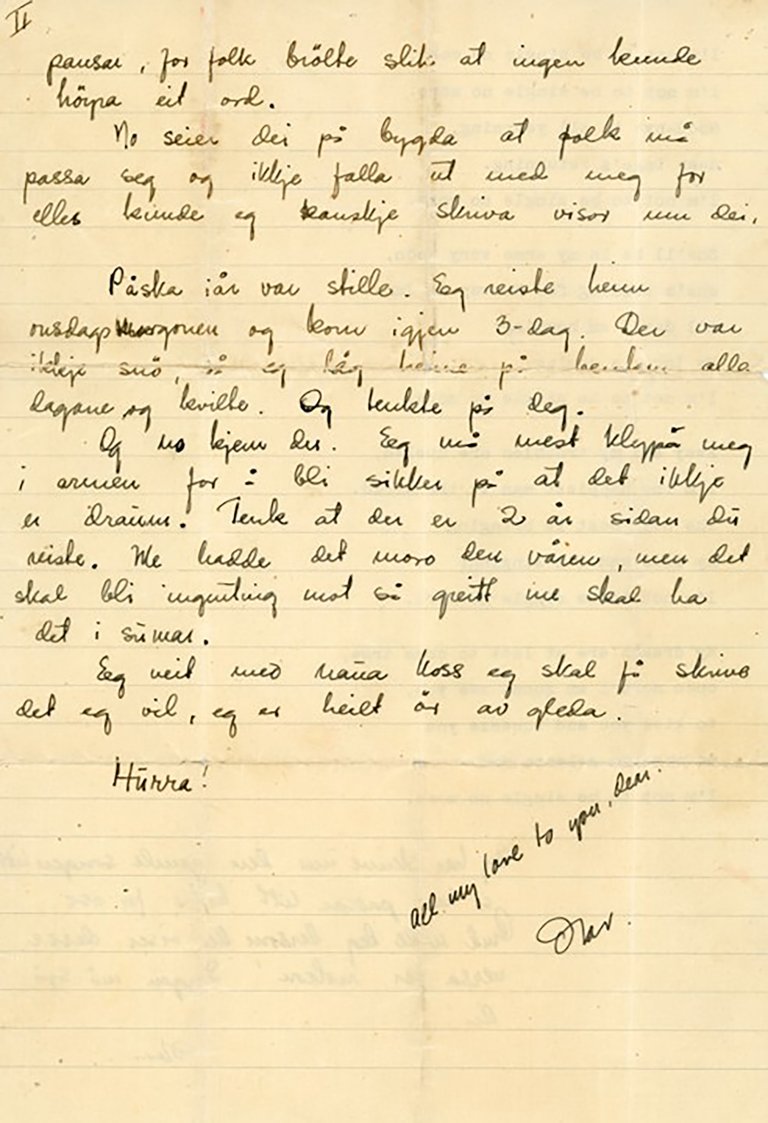 II
pausar, for folk brölte slik at ingen kunde
höyra eit ord.
No seier dei på bygda at folk må
passa seg og ikkje falla ut med meg for
elles kunde eg kanskje skriva visor um dei.
Påska iår var stille. Eg reiste heim
onsdagsmorgonen og kom igjen 3-dag. Der var
ikkje snö, så eg låg heime på benken alle
dagane og kvilte. Og tenkte på deg.
Og no kjem du. Eg må mest klypå meg
i armen for å bli sikker på at det ikkje
er draum. Tenk at der er 2 år sidan du
reiste. Me hadde det moro den våren, men det
skal bli ingenting mot så greitt me skal ha
det i sumar.
Eg veit med naua koss eg skal få skriva
det eg vil, eg er heilt ör av gleda.
Hurra!
all my love to you, dear.
Olav.